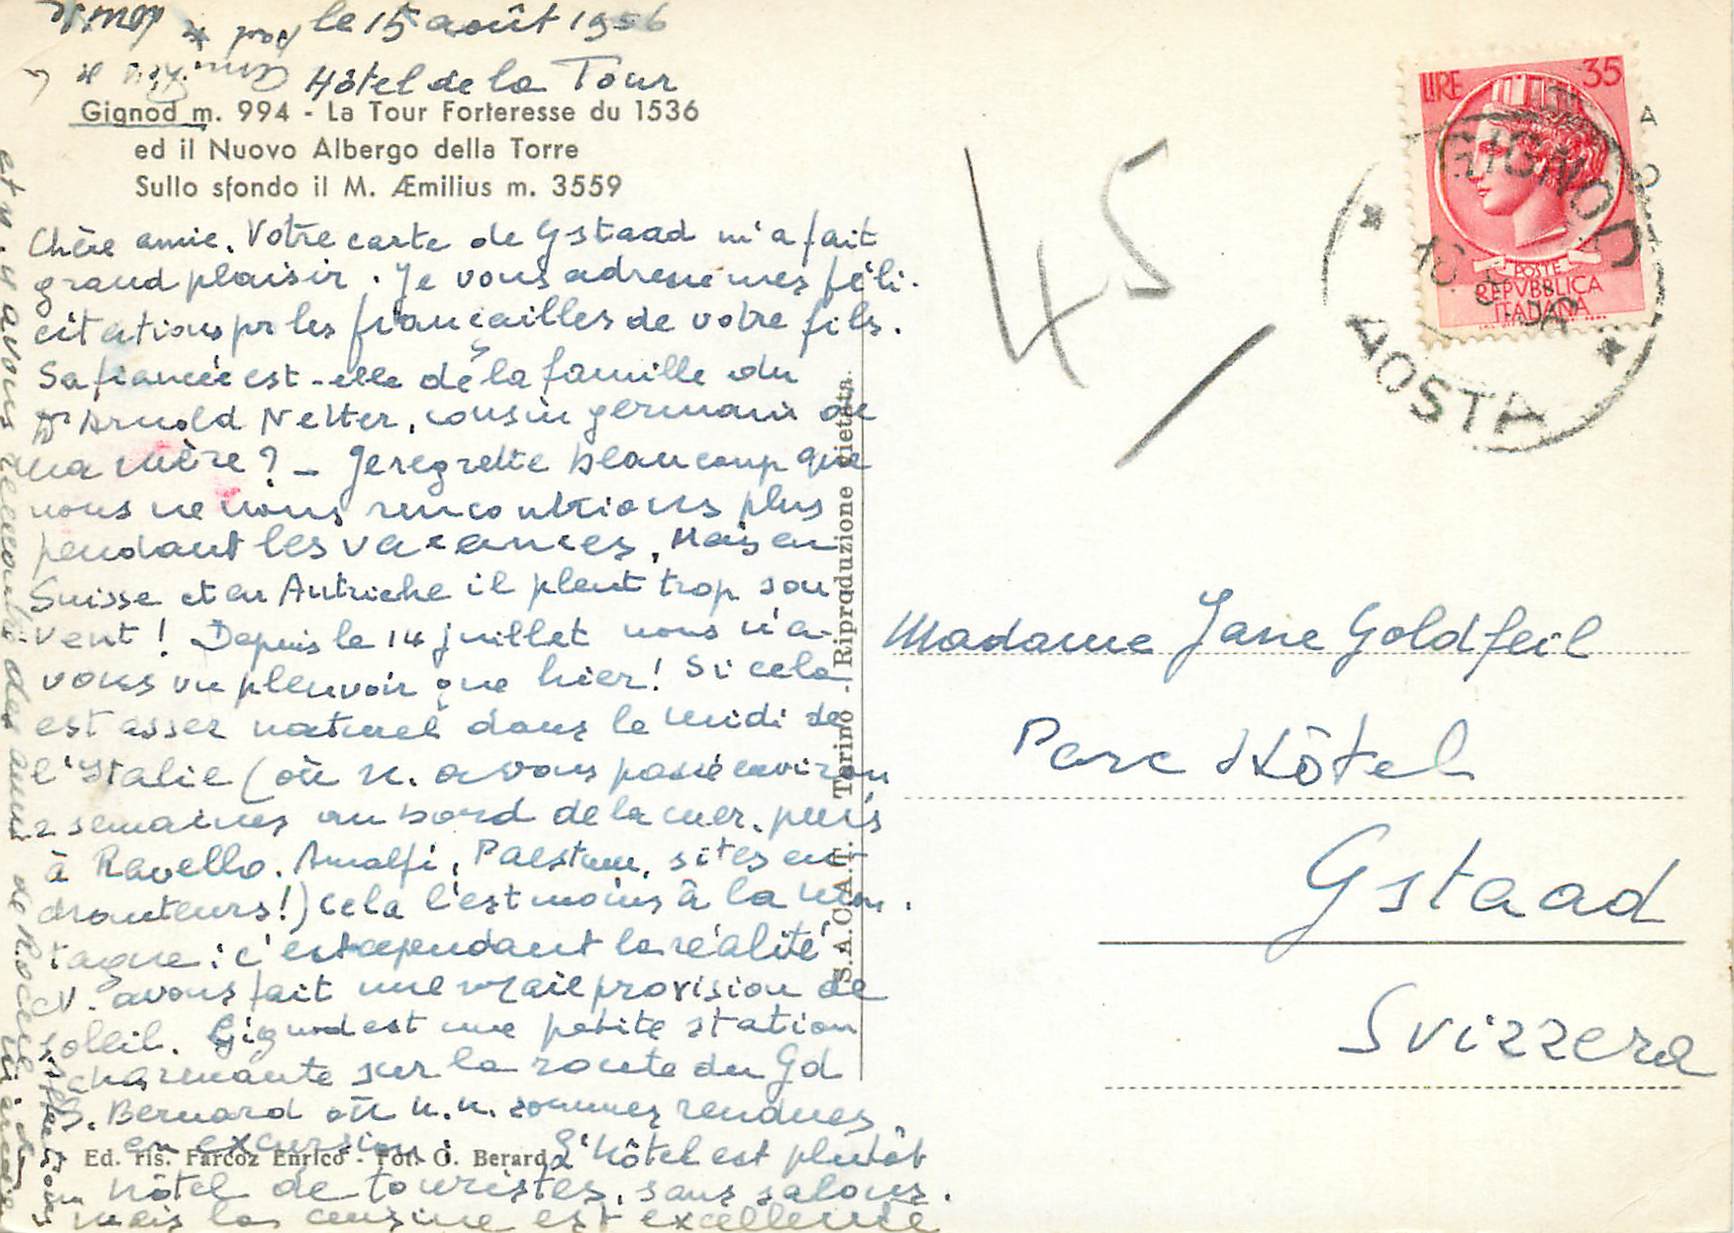 le 15 août 1956
Hôtel de la Tour
Gignod m. 994 - La Tour Forteresse du 1536
ed il Nuovo Albergo della Torre
Sullo sfondo il M. Æmilius m. 3559
Chère amie, Votre carte de Gstaad m'a fait
grand plaisir. Je vous adresse mes féli-
citations pr les fiançailles de votre fils.
Sa fiancée est-elle de la famille du
Dr Arnold Netter, cousin germain de
ma mère ? – Je regrette beaucoup que
nous ne nous rencontrions plus
pendant les vacances, Mais en
Suisse et en Autriche il pleut trop sou
vent ! Depuis le 14 juillet nous n'a-
vons vu pleuvoir que hier ! Si cela
est assez naturel dans le midi de
l'Italie (où n. avons passé environ
2 semaines au bord de la mer, puis
à Ravello, Amalfi, Paestum, sites en-
chanteurs !) cela l'est moins à la mon-
tagne : c'est cependant la réalité
N. avons fait une vraie provision de
soleil. Gignod est une petite station
charmante sur la route du Gd
S. Bernard où n. n. sommes rendues
en excursion. L'hôtel est plutôt
un hôtel de touristes, sans salons.
mais la cuisine est excellente
et n. y avons rencontré des amis de
Ed. ris. Farcoz Enrico - Fot. O. Berard
S.A.C.A.T. Torino - Riproduzione vietata.
45
LIRE 35
POSTE
REPVBBLICA
ITALIANA
GIGNOD
AOSTA
Madame Jane Goldfeil
Parc Hôtel
Gstaad
Svizzera